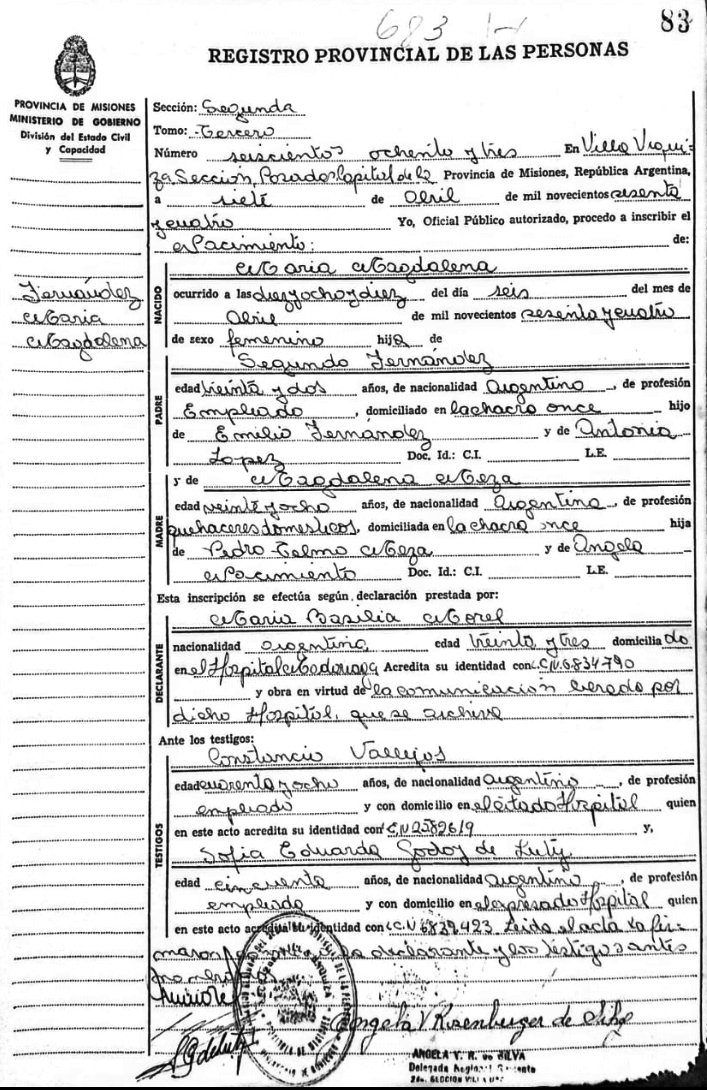 683
83
REGISTRO PROVINCIAL DE LAS PERSONAS
PROVINCIA DE MISIONES
MINISTERIO DE GOBIERNO
División del Estado Civil
y Capacidad
Sección: Segunda
Tomo: Tercero
Número seiscientos ochenta y tres En Villa Urqui-
za Sección, Posadas Capital de la Provincia de Misiones, República Argentina,
a siete de Abril de mil novecientos sesenta
y cuatro Yo, Oficial Público autorizado, procedo a inscribir el
Nacimiento: de:
Fernández
María
Magdalena
NACIDO
María Magdalena
ocurrido a las diez y ocho y diez del día seis del mes de
Abril de mil novecientos sesenta y cuatro
de sexo femenino hija de
PADRE
Segundo Fernández
edad treinta y dos años, de nacionalidad Argentino, de profesión
Empleado, domiciliado en la chacra once hijo
de Emilio Fernández y de Antonia
Lopez Doc. Id.: C.I. L.E.
MADRE
y de Magdalena Meza
edad veinte y ocho años, de nacionalidad Argentina, de profesión
quehaceres domesticos, domiciliada en la chacra once hija
de Pedro Telmo Meza y de Angela
Nacimiento Doc. Id.: C.I. L.E.
Esta inscripción se efectúa según declaración prestada por:
DECLARANTE
María Basilia Morel
nacionalidad argentina edad treinta y tres domiciliado
en el Hospital Madariaga Acredita su identidad con C.C.N. 6834790
y obra en virtud de la comunicación librada por
dicho Hospital, que se archiva
Ante los testigos:
TESTIGOS
Constancio Vallejos
edad cuarenta y ocho años, de nacionalidad argentino, de profesión
empleado y con domicilio en el citado Hospital quien
en este acto acredita su identidad con C.N 2582619 y,
Sofia Eduarda Godoy de Kuty
edad cincuenta años, de nacionalidad argentina, de profesión
empleada y con domicilio en el expresado Hospital quien
en este acto acredita su identidad con C.C.N 6839.423. Leida el acta la fir-
maron declarante y los testigos antes
Angela V Rosenburger de Silva
ANGELA V. R. de SILVA
Delegada
2da. SECCION